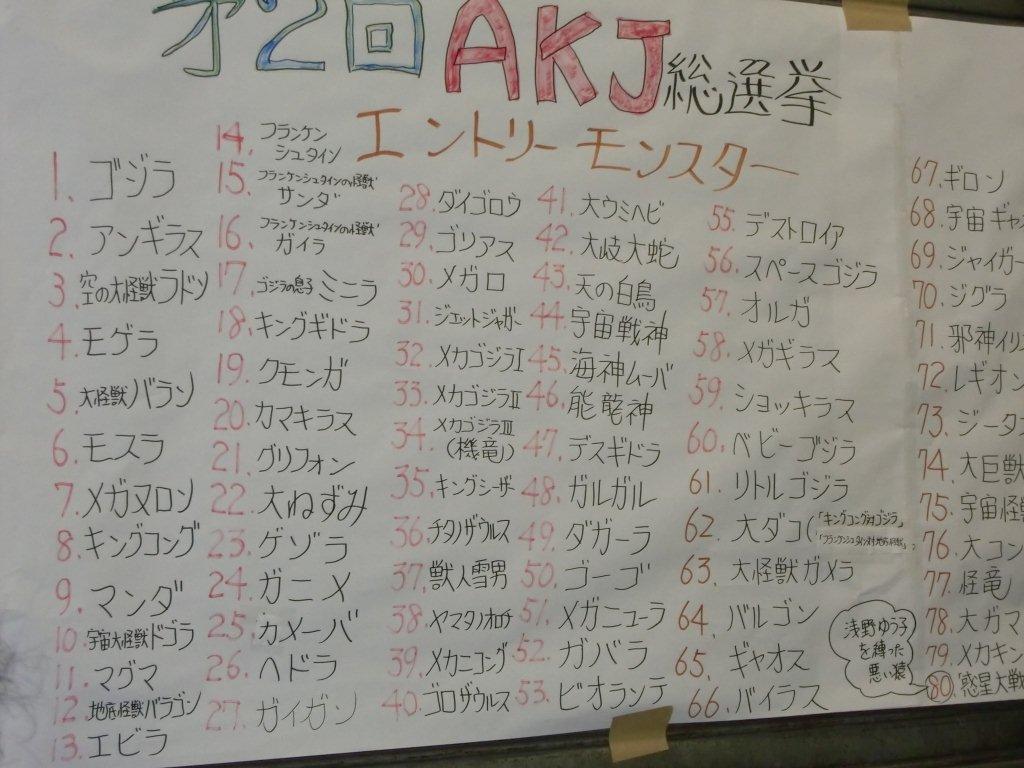 才2回 AKJ総選挙
エントリーモンスター
1. ゴジラ
2. アンギラス
3. 空の大怪獣ラドン
4. モゲラ
5. 大怪獣バラン
6. モスラ
7. メガヌロン
8. キングコング
9. マンダ
10. 宇宙大怪獣ドゴラ
11. マグマ
12. 地底怪獣バラゴン
13. エビラ
14. フランケン
シュタイン
15. フランケンシュタインの怪獣
サンダ
16. フランケンシュタインの怪獣
ガイラ
17. ゴジラの息子 ミニラ
18. キングギドラ
19. クモンガ
20. カマキラス
21. グリフォン
22. 大ねずみ
23. ゲゾラ
24. ガニメ
25. カメーバ
26. ヘドラ
27. ガイガン
28. ダイゴロウ
29. ゴリアス
30. メガロ
31. ジェットジャガー
32. メカゴジラI
33. メカゴジラII
34. メカゴジラIII
(機竜)
35. キングシーサー
36. チタノザウルス
37. 獣人雪男
38. ヤマタノオロチ
39. メカニコング
40. ゴロザウルス
41. 大ウミヘビ
42. 大岐大蛇
43. 天の白鳥
44. 宇宙戦神
45. 海神ムーバ
46. 熊襲神
47. デスギドラ
48. ガルガル
49. ダガーラ
50. ゴーゴ
51. メガニューラ
52. ガバラ
53. ビオランテ
55. デストロイア
56. スペースゴジラ
57. オルガ
58. メガギラス
59. ショッキラス
60. ベビーゴジラ
61. リトルゴジラ
62. 大ダコ(「キングコング対ゴジラ」
「フランケンシュタイン対地底怪獣」)
63. 大怪獣ガメラ
64. バルゴン
65. ギャオス
66. バイラス
67. ギロン
68. 宇宙ギャ
69. ジャイガー
70. ジグラ
71. 邪神イリ
72. レギオン
73. ジータ
74. 大巨獣
75. 宇宙怪
76. 大コン
77. 怪竜
78. 大ガマ
79. メカキン
80. 惑星大戦
浅野ゆう子
を縛った
悪い猿